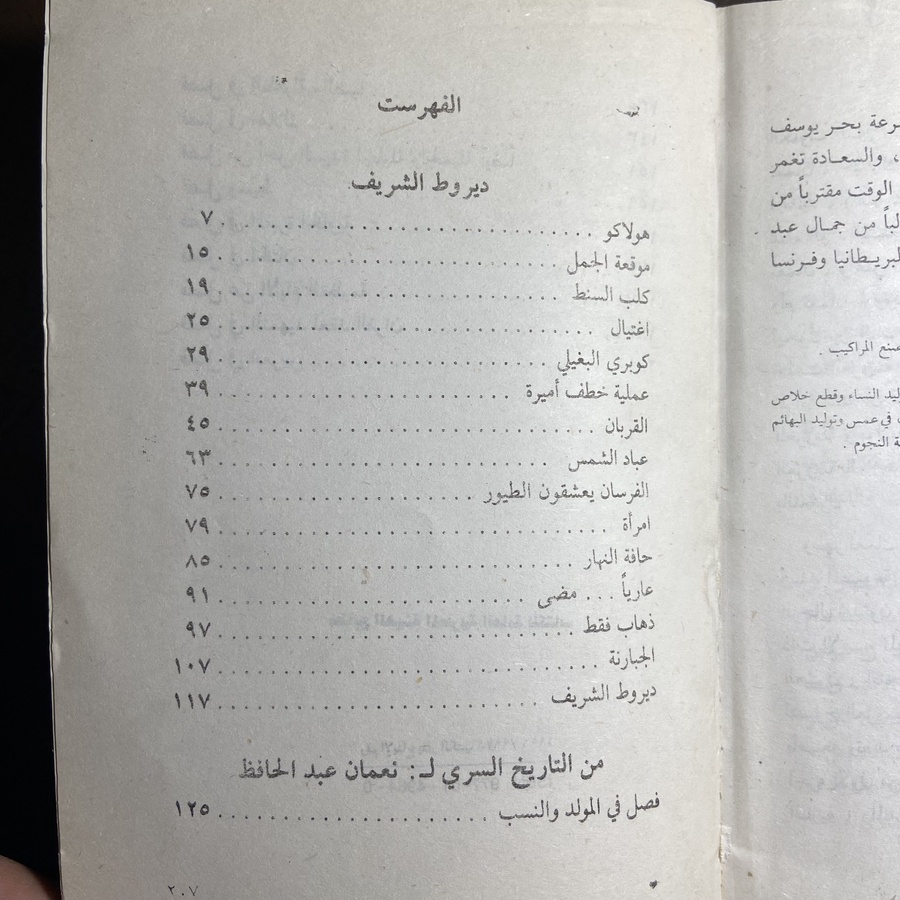 الفهرست
ديروط الشريف
هولاكو ........ ٧
موقعة الجمل ........ ١٥
كلب السنط ........ ١٩
اغتيال ........ ٢٥
كوبري البغيلي ........ ٢٩
عملية خطف أميرة ........ ٣٩
القربان ........ ٤٥
عباد الشمس ........ ٦٣
الفرسان يعشقون الطيور ........ ٧٥
امرأة ........ ٧٩
حافة النهار ........ ٨٥
عارياً ... مضى ........ ٩١
ذهاب فقط ........ ٩٧
الجبارنة ........ ١٠٧
ديروط الشريف ........ ١١٧
من التاريخ السري لـ: نعمان عبد الحافظ
فصل في المولد والنسب ........ ١٢٥
٢٠٧
بحر يوسف
، والسعادة تغمر
الوقت مقترباً من
من جمال عبد
وفرنسا
المراكيب .
النساء وقطع خلاص
وتوليد البهائم
النجوم .